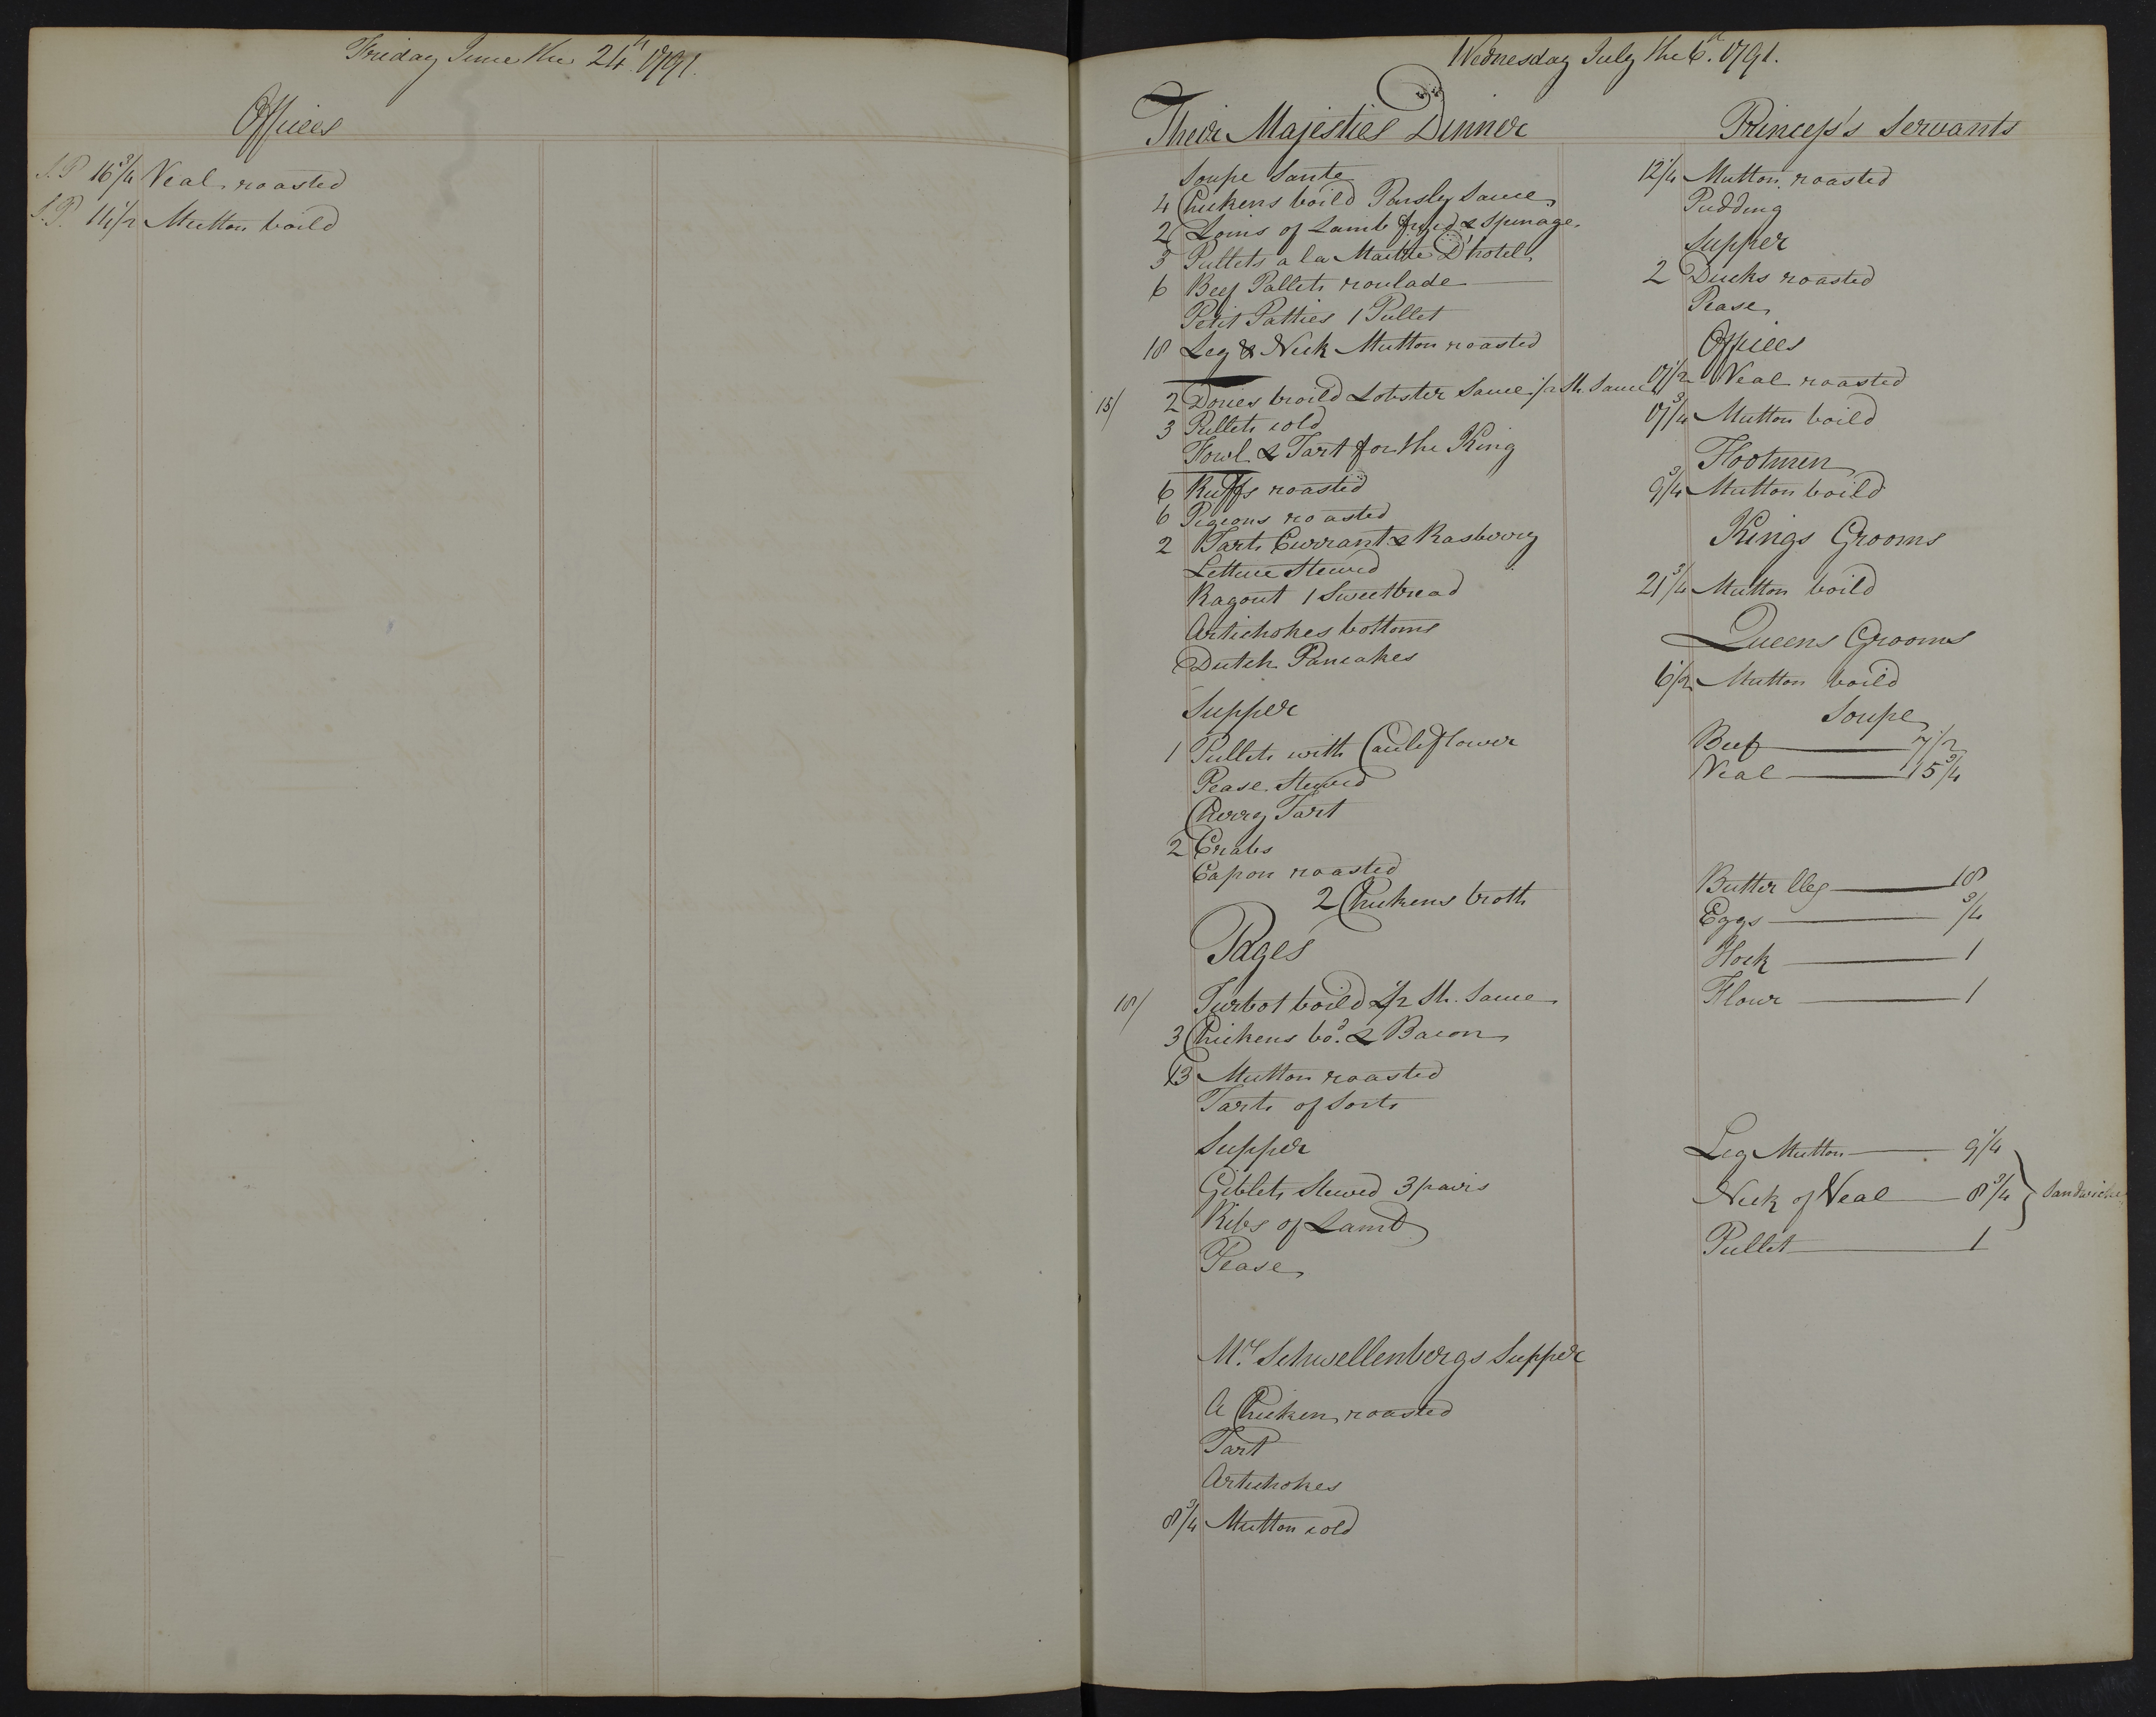 Friday June the 24th. 1791.
Offices
S.P. 16 3/4 Veal roasted
S.P. 11 1/2 Mutton boild
Wednesday July the 6th. 1791.
Their Majesties Dinner
Soupe Sante
4 Chickens boild Parsly Sauce
2 Loins of Lamb fryd & Spinage
3 Pullets a la Maitre D'hotel
6 Beef Pallets roulade
Petit Patties 1 Pullet
18 Leg & Neck Mutton roasted
15/ 2 Dories broild Lobster Sauce 1/2 Sh. Sauce
3 Pullets cold
Fowl & Tart for the King
6 Ruffs roasted
6 Pigeons roasted
2 Tarts Currant & Rasberry
Lettuce Stewed
Ragout 1 Sweetbread
Artichokes bottoms
Dutch Pancakes
Supper
1 Pullets with Cauleflower
Pease Stewed
Cherry Tart
2 Crabs
Capon roasted
2 Chickens broth
Pages
18/ Turbot boild & 1/2 Sh. Sauce
3 Chickens bod. & Bacon
13 Mutton roasted
Tarts of Sorts
Supper
Giblets Stewed 3 pairs
Ribs of Lamb
Pease
Mrs. Schwellenbergs Supper
A Chicken roasted
Tart
Artichokes
8 3/4 Mutton cold
Princess's Servants
12 1/4 Mutton roasted
Pudding
Supper
2 Ducks roasted
Pease
Offices
17 1/2 Veal roasted
17 3/4 Mutton boild
Footmen
9 3/4 Mutton boild
Kings Grooms
21 3/4 Mutton boild
Queens Grooms
6 1/2 Mutton boild
Soupe
Beef 7 1/2
Veal 15 3/4
Butter lbs 18
Eggs 3/4
Hock 1
Flour 1
Leg Mutton 9 1/4
Neck of Veal 8 3/4 } Sandwiches
Pullet 1